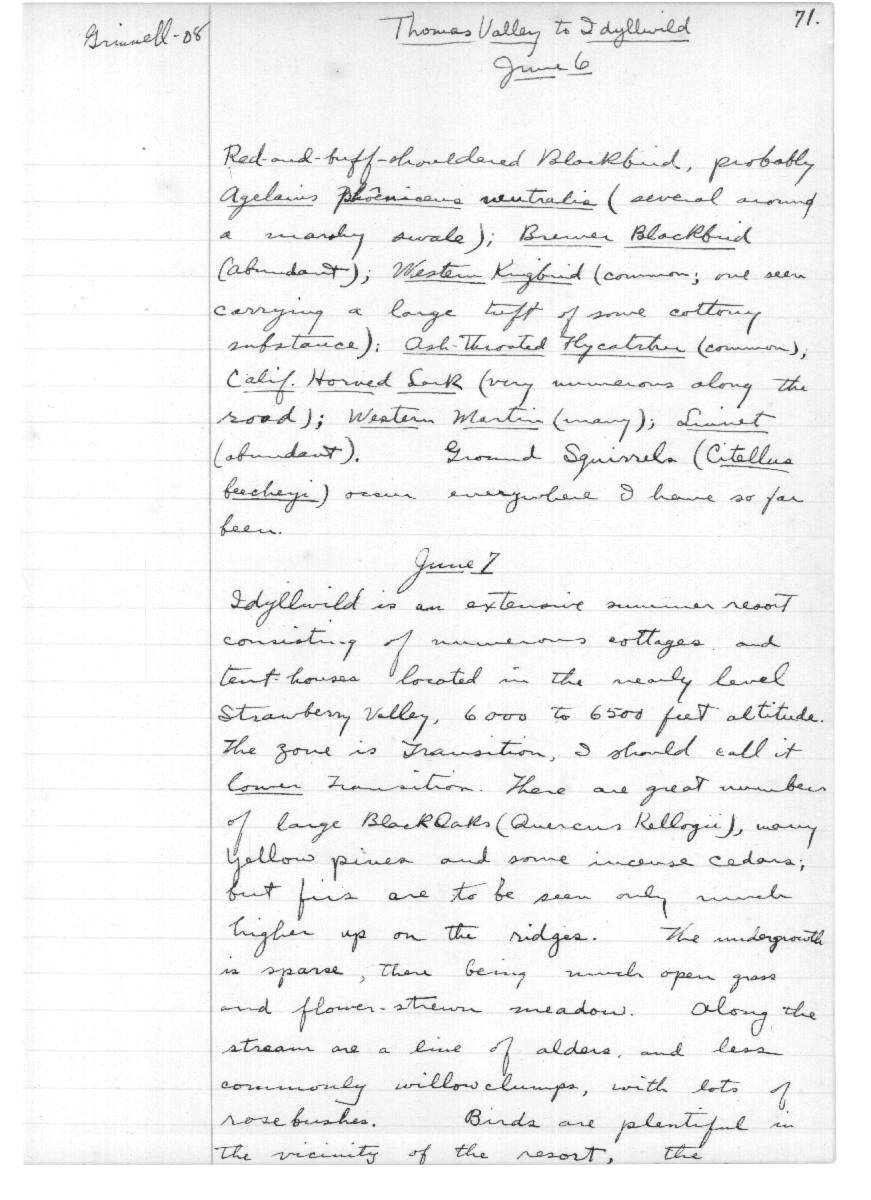 Grinnell-08
Thomas Valley to Idyllwild
71.
June 6
Red-and-buff-shouldered Blackbird, probably
Agelaius phoeniceus neutralis (several around
a marshy swale); Brewer Blackbird
(abundant); Western Kingbird (common; one seen
carrying a large tuft of some cottony
substance); Ash-Throated Flycatcher (common);
Calif. Horned Lark (very numerous along the
road); Western Martin (many); Linnet
(abundant). Ground Squirrels (Citellus
beecheyi) occur everywhere I have so far
been.
June 7
Idyllwild is an extensive summer resort
consisting of numerous cottages and
tent-houses located in the nearly level
Strawberry Valley, 6000 to 6500 feet altitude.
The zone is Transition, I should call it
lower Transition. There are great numbers
of large Black Oaks (Quercus Kelloggii), many
Yellow pines and some incense cedars;
but firs are to be seen only much
higher up on the ridges. The undergrowth
is sparse, there being much open grass
and flower-strewn meadow. Along the
stream are a line of alders, and less
commonly willow clumps, with lots of
rosebushes. Birds are plentiful in
the vicinity of the resort, the